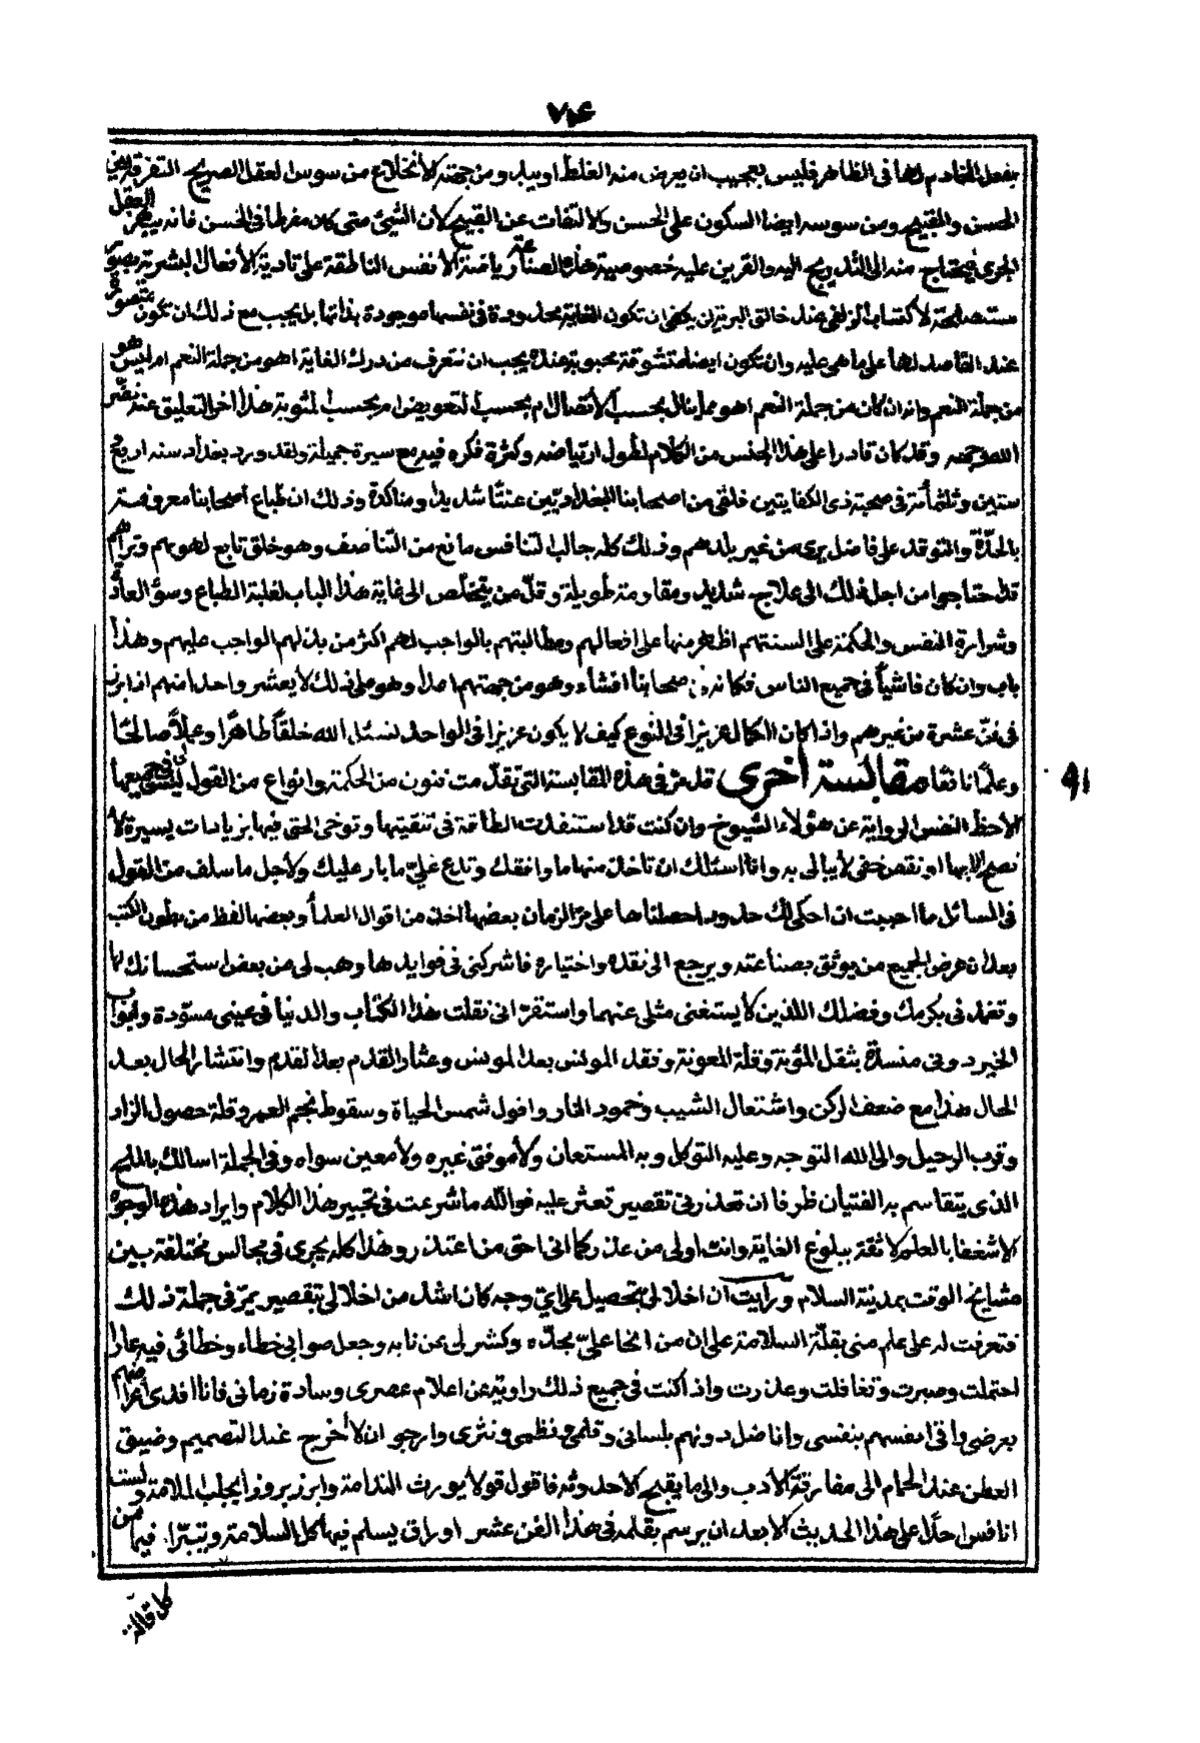 ٧٤
بفعل الخادم لها فى الظاهر فليس بعجيب ان يعرض منه الغلط او بليد ومن جهته الأنخلاع من سوس العقل الصريح التفرقة بين
الحسن والقبيح ومن سوسه ايضا السكون على الحسن والالتفات عن القبيح لأن الشئ متى كان مفرطا فى الحسن فانه يبهر العقل
الجزئى فيحتاج منه الى التدريج اليه والقرين عليه خصوصية هذه الصناعة رياضة الأنفس الناطقة على تادية الأفعال البشرية بصورة
مستصلحة لاكتساب الزلفى عند خالق البرية لن يكفى ان تكون الغاية محدودة فى نفسها موجودة بذاتها بل يجب مع ذلك ان تكون متصورة
عند القاصد لها على ما هى عليه وان تكون ايضا متشوقة محبوبة عنده يجب ان نتعرف من درك الغاية اهو من جملة النعم ام ليس هو
من جملة النعم وانه ان كان من جملة النعم اهو مما ينال بحسب الأتصال ام بحسب التعويض ام بحسب المثوبة هذا اخر التعليق عنه نضر
الله وجهه وقد كان قادرا على هذا الجنس من الكلام لطول ارتياضه وكثرة فكره فيه مع سيرة جميلة ولقد ورد بغداد سنة اربع
ستين وثلثمأئة فى صحبة ذى الكفايتين فلقى من اصحابنا البغداديين عنتًا شديدا ومناكدة وذلك ان طباع اصحابنا معروفة
بالحدّة والتوقد على فاضل يرى من غير بلدهم وذلك كله جالب التنافس مانع من التناصف وهو خلق تابع لهويهم وتراهم
قد احتاجوا من اجل ذلك الى علاج شديد ومقاومة طويلة وقلّ من يتخلّص الى غاية هذا الباب لغلبة الطباع وسؤ العادة
وشرارة النفس والحكمة على السنتهم اظهر منها على افعالهم ومطالبتهم بالواجب لهم اكثر من بذلهم الواجب عليهم وهذا
باب وان كان فاشياً فى جميع الناس فكانه فى اصحابنا افشاء وهو من جهتهم اهدا وهو على ذلك لا يعشر واحد منهم اذا برز
فى فنّ عشرة من غيرهم واذا كان الكمال عزيزا فى النوع كيف لا يكون عزيزا فى الواحد نسئل الله خلقًا طاهرًا وعملاً صالحًا
وعلمًا نافعًا مقابسة أخرى قد مرّ فى هذه المقابسة التى تقدّمت فنون من الحكمة وانواع من القول ليس لى فى جميعها
٩١
الاحظ النفس الرواية عن هؤلاء الشيوخ وان كنت قد استنفدت الطاقة فى تنقيتها وتوخى الحق فيها بزيادات يسيرة لا
تصح الا بها او نقص خفى لا يبالى به وانا اسئلك ان تاخذ منها ما وافقك وتدع علىّ ما بار عليك ولاجل ما سلف من القول
فى المسائل ما احببت ان احكى لك حدود احصلناها على مرّ الزمان بعضها اخذ من اقوال العلمأ وبعضها لقط من بطون الكتب
بعد ان عرض الجميع من يوثق بصناعته ويرجع الى نقده واختياره فاشركنى فى فوايدها وهب لى من بعض استحسانك لها
وتغمدنى بكرمك وفضلك اللذين لا يستغنى مثلى عنهما واستقرّ انى نقلت هذا الكتاب والدنيا فى عينى مسّودة وابواب
الخير دونى منسدّة بثقل المؤنة وقلة المعونة وفقد المونس بعد المونس وعثار القدم بعد القدم وانتشار الحال بعد
الحال هذا مع ضعف الركن واشتعال الشيب وخمود النار وافول شمس الحياة وسقوط نجم العمر وقلة حصول الزاد
وقرب الرحيل والى الله التوجه وعليه التوكل وبه المستعان ولا موفق غيره ولا معين سواه وفى الجملة اسالك بالملح
الذى يتقاسم به الفتيان ظرفا ان تعذرنى تقصير تعثر عليه فوالله ما شرعت فى تحبير هذا الكلام وايراد هذه الوجوه
الا شغفا بالعلم لا ثقة ببلوغ الغاية وانت اولى من عذر كما انى احق من اعتذر وهذا كله يجرى فى مجالس مختلفة بين
مشايخ الوقت بمدينة السلام ورايت ان اخلالى بتحصيل على اىّ وجه كان اشد من اخلالى بتقصير يمرّ فى جملة ذلك
فتعرفت له على علم منى بقلّة السلامة على ان من انحا علىّ مجدّه وكشر لى عن نابه وجعل صوابى خطاء وخطائى فيه عارا
احتملت وصبرت وتغافلت وعذرت واذا كنت فى جميع ذلك راوية عن اعلام عصرى وسادة زمانى فانا افدى اعراضهم
بعرضى واقى انفسهم بنفسى واناضل دونهم بلسانى وقلمى ونظمى ونثرى وارجو ان لا أخرج عند التصميم وضيق
العطن عند الحمام الى مفارقة الأدب والى ما يقبح الاحدوثه فاقول قولا يورث الندامة وابرز بروزا يجلب الملامة ولست
انافس احدًا على هذا الحديث الا بعد ان يرسم بقلمه فى هذا الفن عشر اوراق يسلم فيها كل السلامة ويتبرّا فيها من
كل قالة